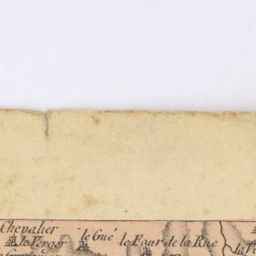 Chevalier
le Verger
le Gué
le Four de la Rue